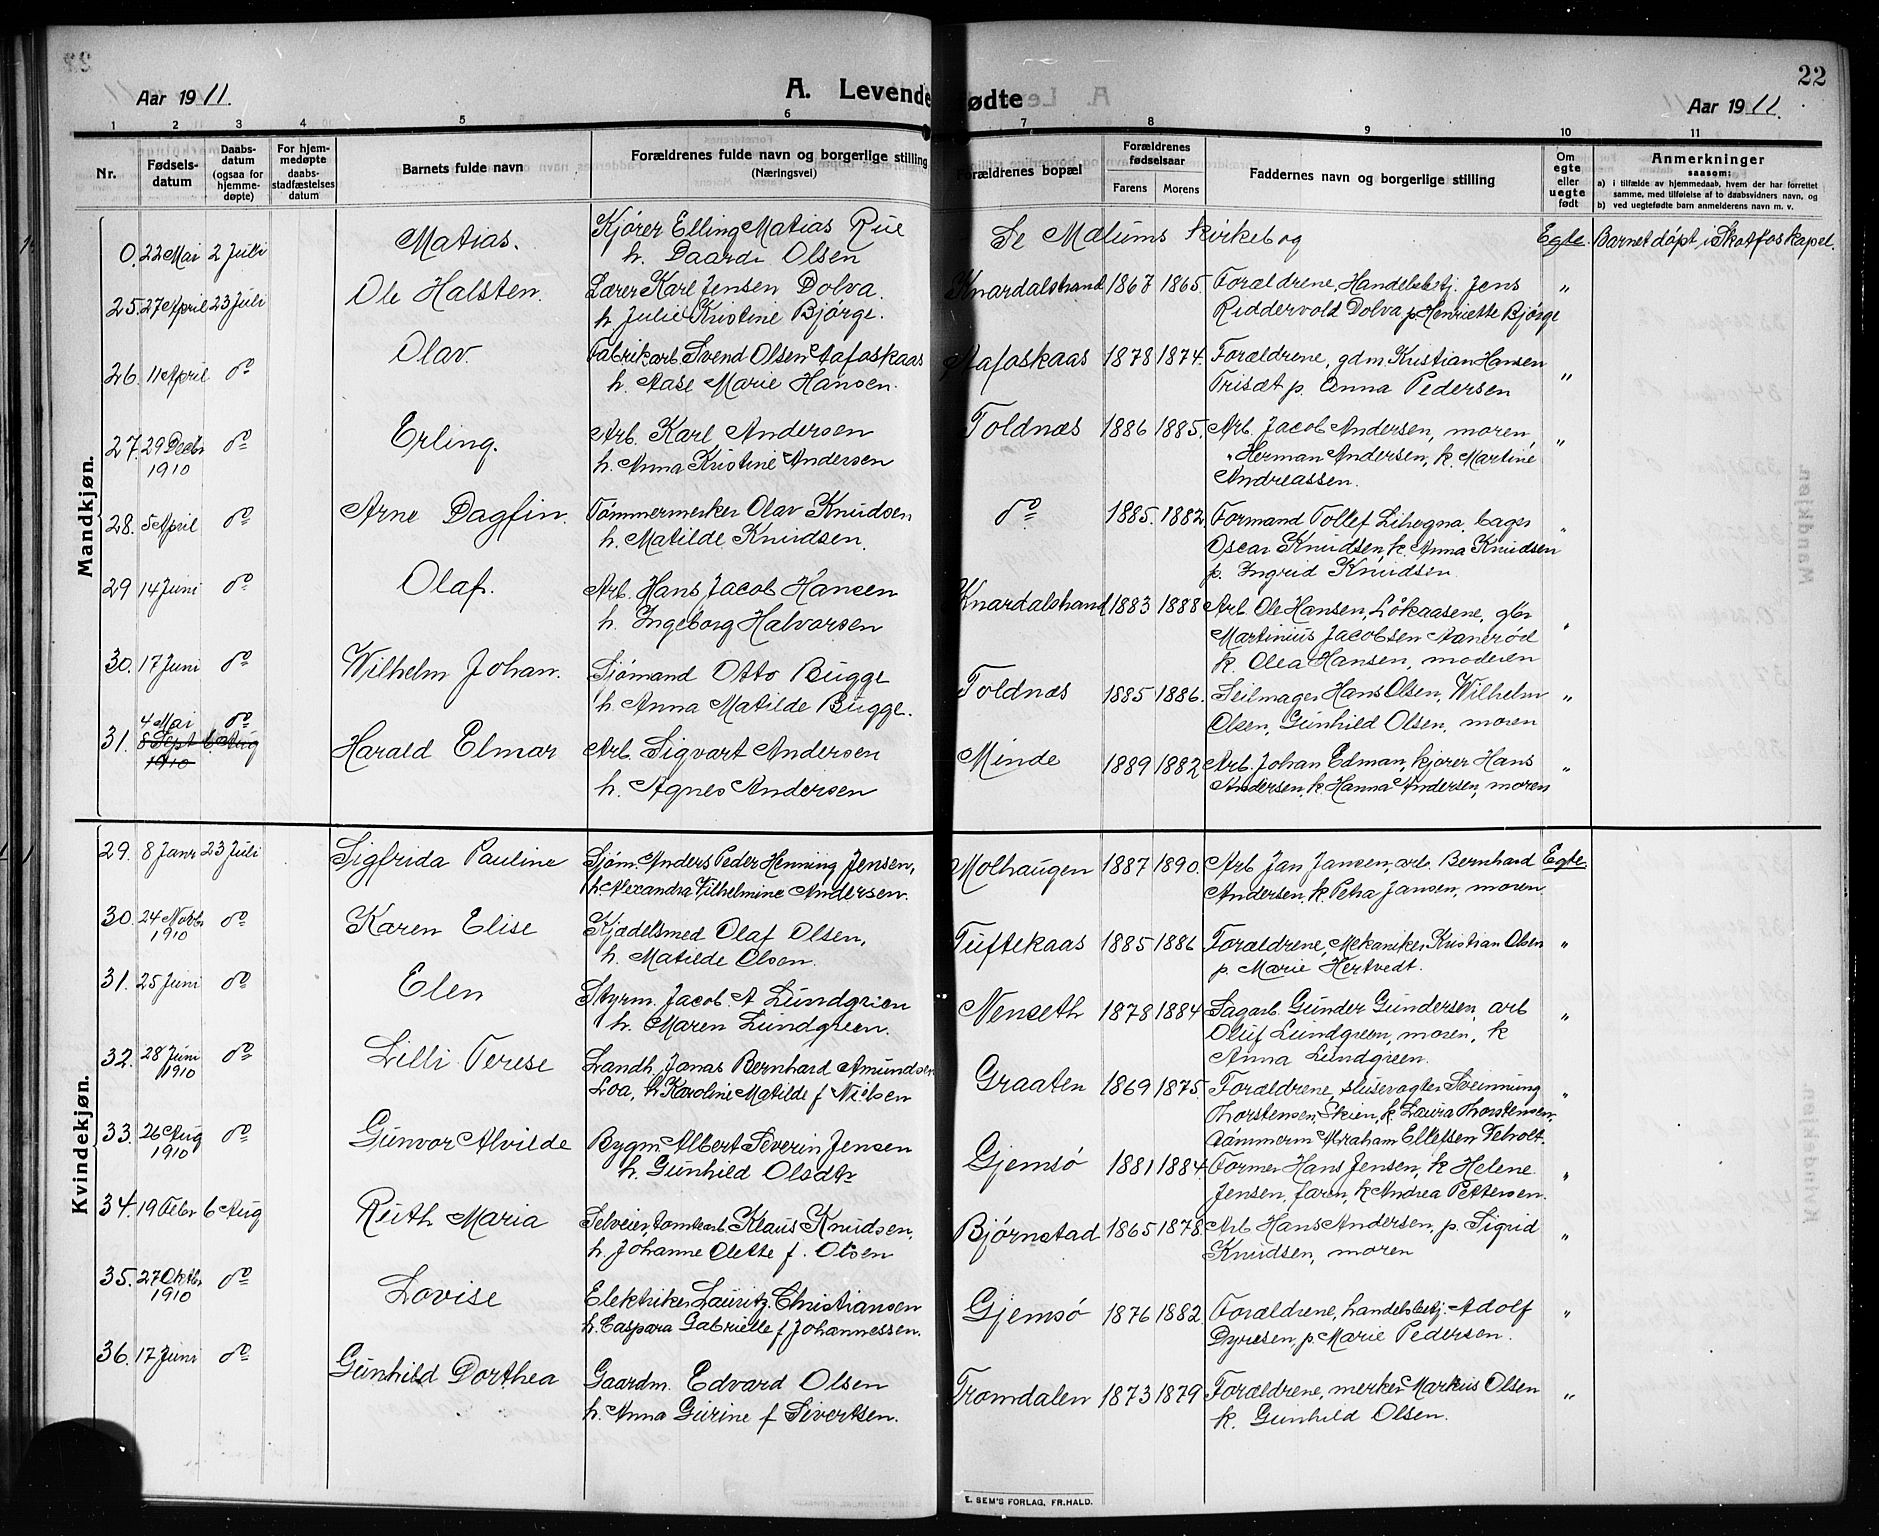 22
Aar 1911.
A. Levendefødte
Aar 1911.
1 2 3 4 5 6 7 8 9 10 11
Nr.
Fødselsdatum
Daabsdatum (ogsaa for hjemmedøpte)
For hjemmedøpte daabsstadfæstelses datum
Barnets fulde navn
Forældrenes fulde navn og borgerlige stilling (Næringsvei)
Forældrenes bopæl
Forældrenes fødselsaar
Farens Morens
Faddernes navn og borgerlige stilling
Om egte eller uegte født
Anmerkninger
saasom:
a) i tilfælde av hjemmedaab, hvem der har forrettet samme, med tilføielse af to daabsvidners navn, og
b) ved uegtefødte barn anmelderens navn m. v.
Mandkjøn.
0. 22 Mai 2 Juli Matias. Kjører Elling Matias Rue Se Mælums kirkebog Egte. Barnet døpt i Skotfos kapel.
h. Daarde Olsen
25. 27 April 23 Juli Ole Halsten. Lærer Karl Jensen Dolva. Knardalstrand 1867 1865. Forældrene, Handelsbetj. Jens "
h. Julie Kristine Bjørge. Riddervold Dolva p. Henriette Bjørge
26. 11 April do Olav. Fabrikarb. Svend Olsen Aafoskaas Aafoskaas 1878 1874. Forældrene, gdm Kristian Hansen
h. Aase Marie Hansen. Trisæt p. Anna Pedersen "
27. 29 Decbr 1910 do Erling. Arb. Karl Andersen Toldnæs 1886 1885. Arb. Jacob Andersen, moren, "
h. Anna Kristine Andersen " Herman Andersen, k. Martine
Andreassen.
28. 5 April do Arne Dagfin. Tømmermerker Olav Knudsen do 1885. 1882 Formand Tollef Lihogna, bager "
h. Matilde Knudsen. Oscar Knudsen, k. Anna Knudsen
p. Ingrid Knudsen.
29 14 Juni do Olaf. Arb. Hans Jacob Hansen Knardalstrand 1883 1888 Arb. Ole Hansen, Løkaasene, gbr
h. Ingeborg Halvorsen Martinius Jacobsen Aanerød "
k. Olea Hansen, moderen
30. 17 Juni do Wilhelm Johan. Sjømand Otto Bugge Toldnæs 1885 1886. Seilmager Hans Olsen, Wilhelm "
h. Anna Matilde Bugge. Olsen, Gunhild Olsen, moren
31. 4 Mai do 8 Sept 1910 6. Aug Harald Elmar Arb. Sigvart Andersen Minde 1889 1882 Arb. Johan Edman, kjører Hans "
h. Agnes Andersen Andersen, k. Hanna Andersen, moren
Kvindekjøn.
29. 8 Janr 23 Juli Sigfrida Pauline Sjøm. Anders Peder Henning Jensen, Molhaugen 1887 1890. Arb Jan Jansen, arb. Bernhard Egte
h. Alexandra Vilhelmine Andersen. Andersen, k. Petra Jansen, moren.
30. 24 Novbr 1910 do Karen Elise Kjedelsmed Olaf Olsen, Tuftekaas 1885 1886 Forældrene, Mekaniker Kristian Olsen "
h. Matilde Olsen. p. Marie Hertvedt.
31. 25 Juni do Elen Styrm. Jacob A Lundgrien Nenseth 1878 1884 Sagarb. Gunder Gundersen, arb "
h. Maren Lundgreen. Oluf Lundgreen, moren, k
Anna Lundgreen.
32. 28 Juni 1910 do Lilli Terese Landh. Jonas Bernhard Amundsen Graaten 1869 1875. Forældrene, slusevogter Sveinung "
Loa, h. Karoline Matilde f Nielsen Thorstensen, Skien, k. Laura Thorstensen.
Tømmerm Abraham Ellefsen Veholt.
33. 26 Aug 1910 do Gunvor Alvilde Bygm. Albert Severin Jensen Gjemsø 1881 1884. Former Hans Jensen, k Helene "
h. Gunhild Olsdtr Jensen, faren, k Andrea Pettersen.
34. 19 Febr 6 Aug Ruth Maria Selveier, tomtearb. Klaus Knudsen, Bjørnstad 1865 1878. Arb Hans Andersen, p. Sigrid "
h. Johanne Olette f. Olsen Knudsen, moren
35. 27 Oktbr 1910 do Lovise Elektriker Lauritz Christiansen Gjemsø 1876 1882. Forældrene, handelsbetj. Adolf "
h. Caspara Gabrielle f Johannessen. Dyresen, p. Marie Pedersen.
36. 17 Juni do Gunhild Dorthea Gaardm. Edvard Olsen Tromdalen 1873 1879. Forældrene, merker Markus Olsen "
h. Anna Gurine f Sivertsen. k. Gunhild Olsen.
E. SEM'S FORLAG, FR.HALD.